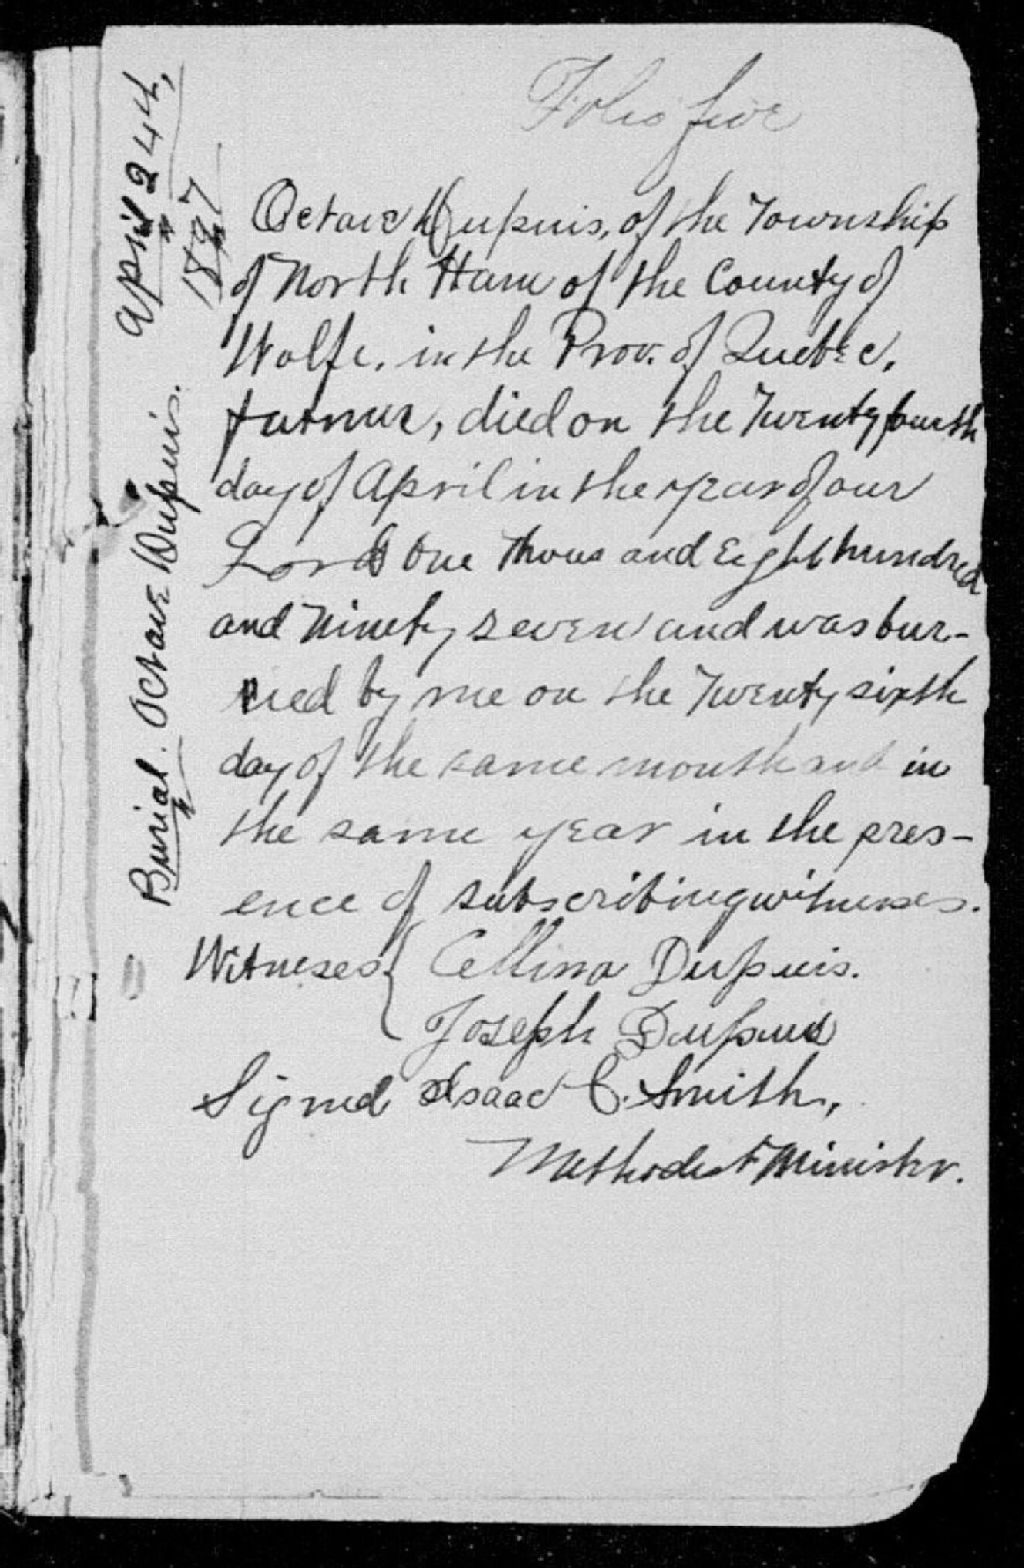 Folio five
April 24th,
1897
Burial. Octave Dupuis.
Octave Dupuis, of the Township
of North Ham of the County of
Wolfe, in the Prov. of Quebec,
farmer, died on the Twenty fourth
day of April in the year of our
Lord One Thousand Eight hundred
and Ninety seven and was bur-
ried by me on the Twenty sixth
day of the same month and in
the same year in the pres-
ence of subscribing witnesses.
Witnesses { Cellina Dupuis.
Joseph Dupuis
Signed Isaac C. Smith,
Methodist Minister.